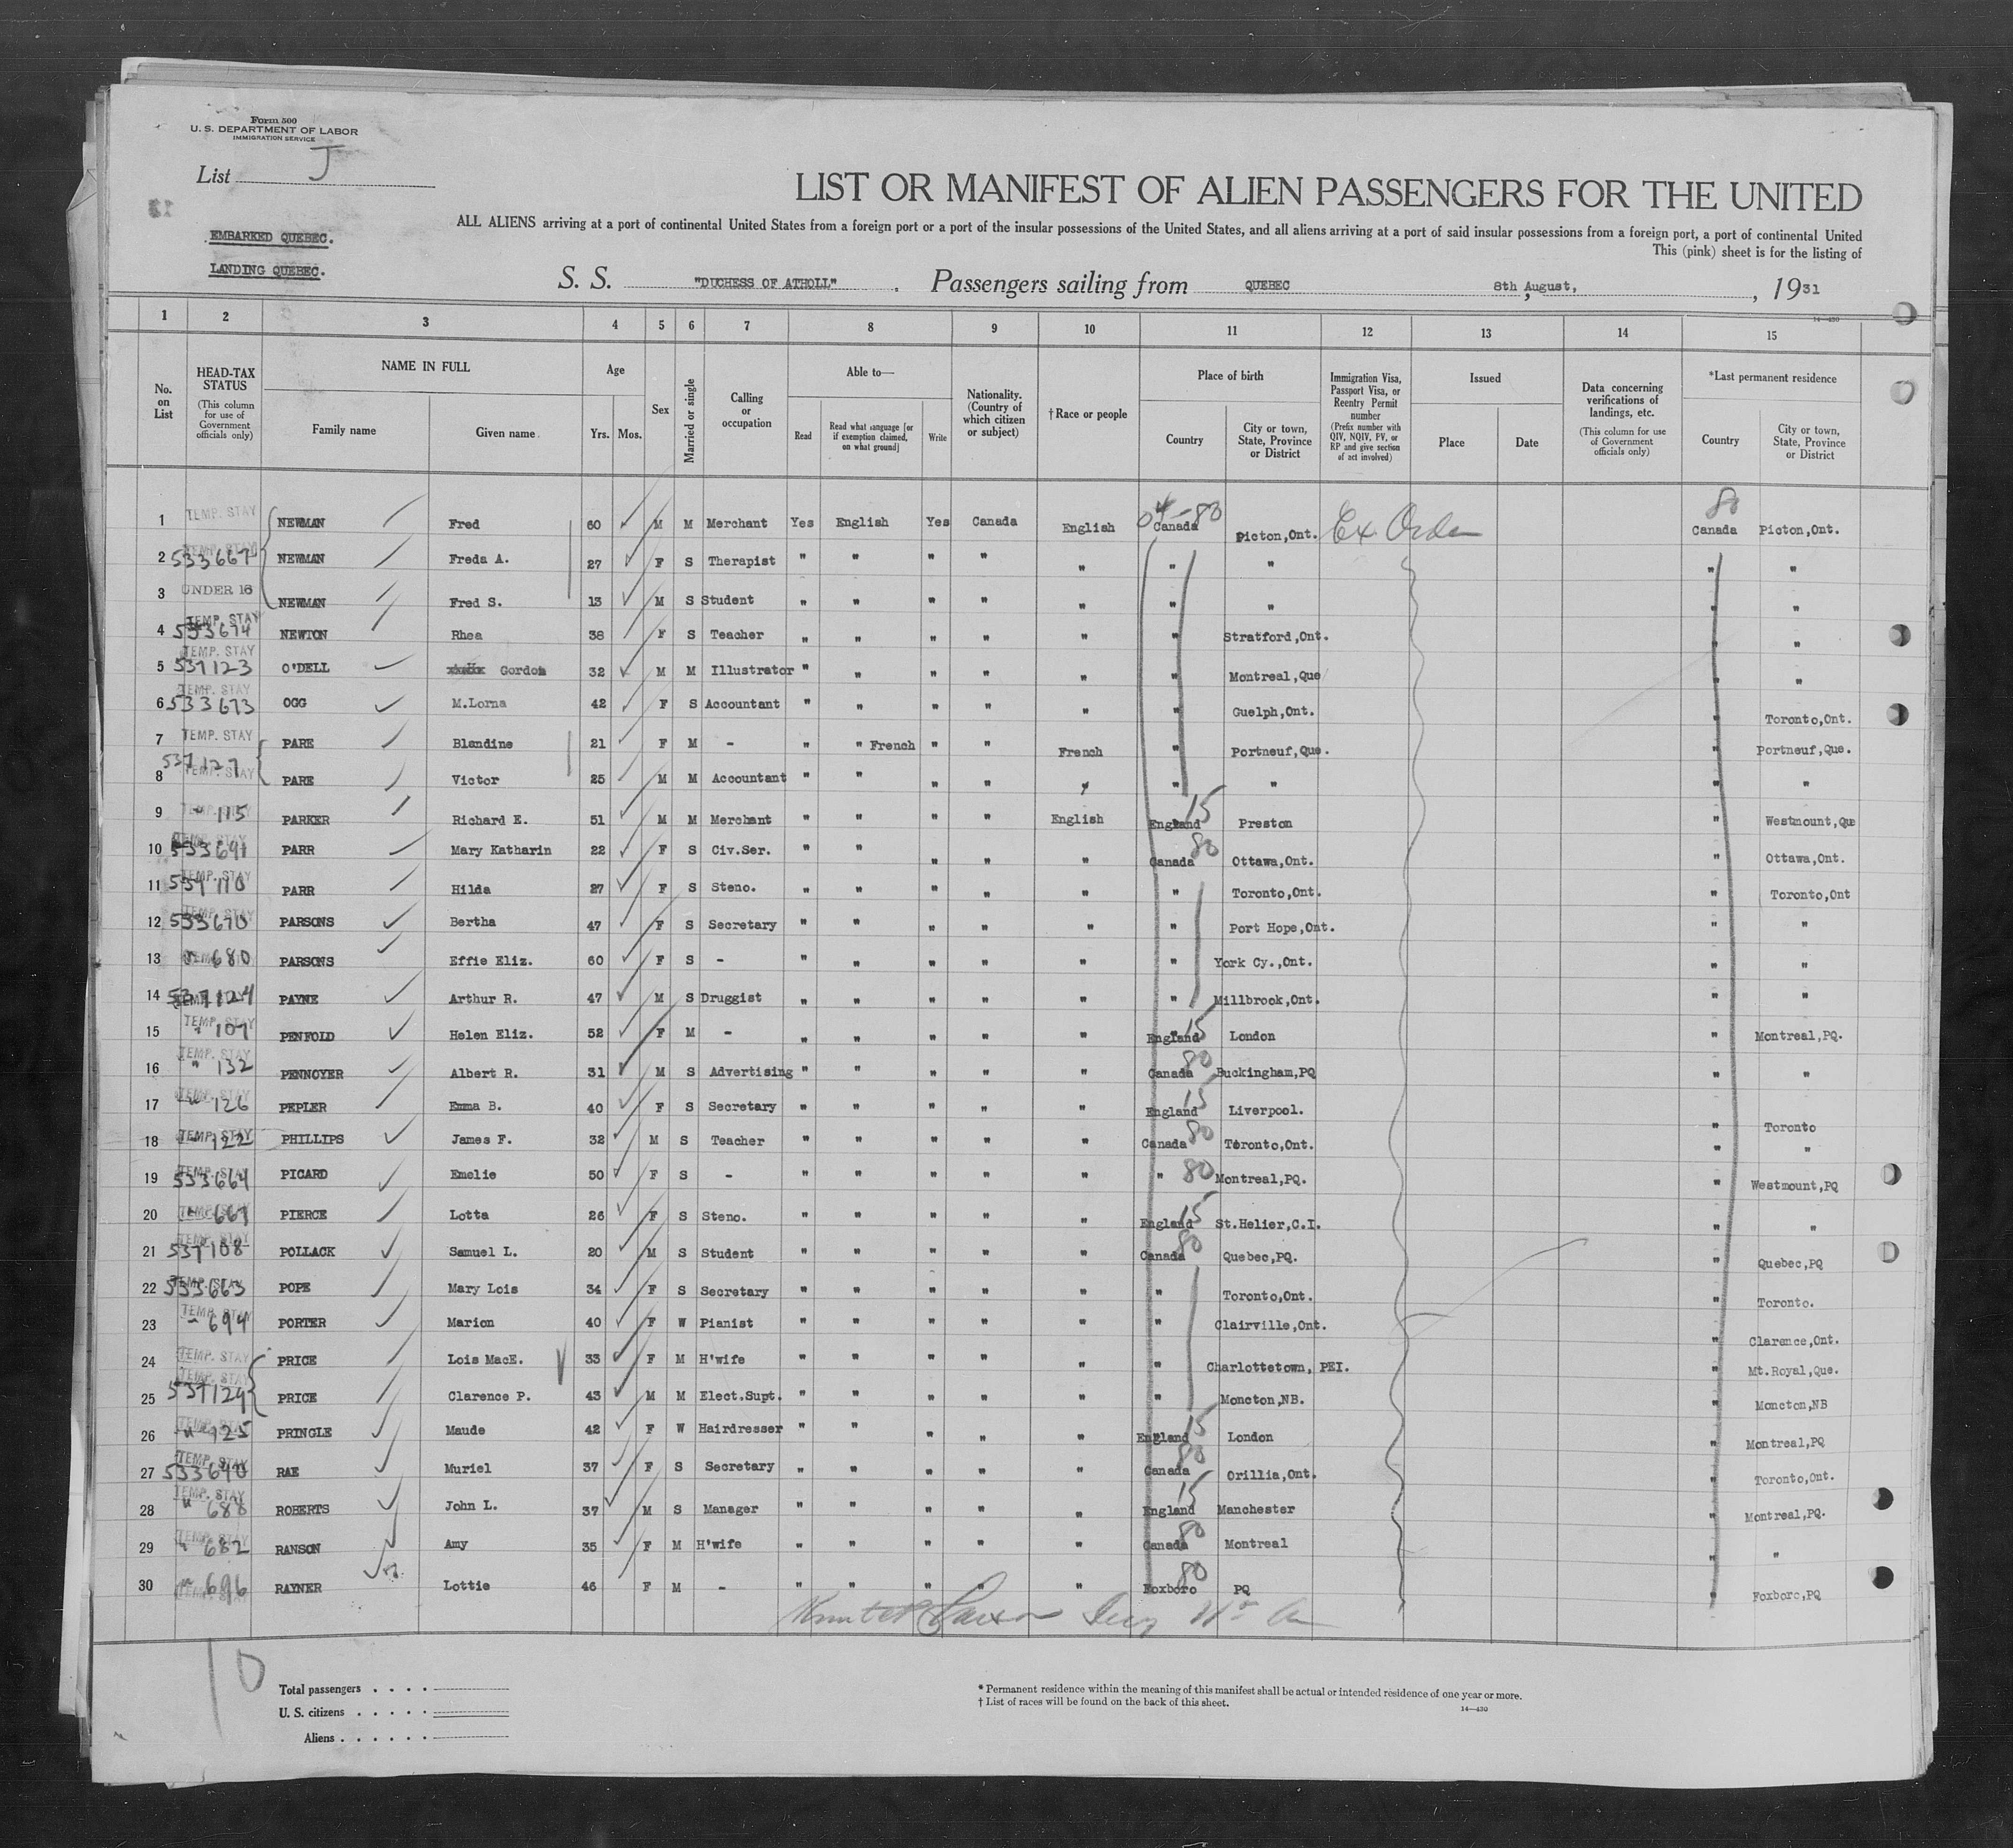 Form 500
U. S. DEPARTMENT OF LABOR
IMMIGRATION SERVICE
List J
LIST OR MANIFEST OF ALIEN PASSENGERS FOR THE UNITED
ALL ALIENS arriving at a port of continental United States from a foreign port or a port of the insular possessions of the United States, and all aliens arriving at a port of said insular possessions from a foreign port, a port of continental United
This (pink) sheet is for the listing of
EMBARKED QUEBEC.
LANDING QUEBEC.
S. S. "DUCHESS OF ATHOLL". Passengers sailing from QUEBEC 8th August, , 1931
14—430
1 2 3 4 5 6 7 8 9 10 11 12 13 14 15
No. on List
HEAD-TAX STATUS (This column for use of Government officials only)
NAME IN FULL
Family name
Given name
Age
Yrs. Mos.
Sex
Married or single
Calling or occupation
Able to—
Read
Read what language [or if exemption claimed, on what ground]
Write
Nationality. (Country of which citizen or subject)
†Race or people
Place of birth
Country
City or town, State, Province or District
Immigration Visa, Passport Visa, or Reentry Permit number (Prefix number with QIV, NQIV, PV, or RP and give section of act involved)
Issued
Place
Date
Data concerning verifications of landings, etc. (This column for use of Government officials only)
*Last permanent residence
Country
City or town, State, Province or District
1 TEMP. STAY NEWMAN Fred 60 M M Merchant Yes English Yes Canada English Canada 80 Picton,Ont. Ex Order 80 Canada Picton,Ont.
2 533667 TEMP. STAY NEWMAN Freda A. 27 F S Therapist " " " " " " " " "
3 UNDER 16 NEWMAN Fred S. 13 M S Student " " " " " " " " "
4 TEMP. STAY 533674 NEWTON Rhea 38 F S Teacher " " " " " " Stratford,Ont. " "
5 TEMP. STAY 537123 O'DELL Gordon 32 M M Illustrator " " " " " " Montreal,Que " "
6 TEMP. STAY 533673 OGG M.Lorna 42 F S Accountant " " " " " " Guelph,Ont. " Toronto,Ont.
7 TEMP. STAY PARE Blandine 21 F M - " " French " " French " Portneuf,Que. " Portneuf,Que.
8 537127 TEMP. STAY PARE Victor 25 M M Accountant " " " " " " " " "
9 " 115 PARKER Richard E. 51 M M Merchant " " " " English England 15 Preston " Westmount,Que
10 533691 PARR Mary Katharin 22 F S Civ.Ser. " " " " " Canada 80 Ottawa,Ont. " Ottawa,Ont.
11 TEMP. STAY 537110 PARR Hilda 27 F S Steno. " " " " " " Toronto,Ont. " Toronto,Ont
12 TEMP. STAY 533670 PARSONS Bertha 47 F S Secretary " " " " " " Port Hope,Ont. " "
13 " 680 PARSONS Effie Eliz. 60 F S - " " " " " " York Cy.,Ont. " "
14 537124 PAYNE Arthur R. 47 M S Druggist " " " " " " Millbrook,Ont. " "
15 TEMP. STAY " 107 PENFOLD Helen Eliz. 52 F M - " " " " " England 15 London " Montreal,PQ.
16 TEMP. STAY " 132 PENNOYER Albert R. 31 M S Advertising " " " " " Canada 80 Buckingham,PQ " "
17 " 126 PEPLER Emma B. 40 F S Secretary " " " " " England 15 Liverpool. " Toronto
18 TEMP. STAY " 122 PHILLIPS James F. 32 M S Teacher " " " " " Canada 80 Toronto,Ont. " "
19 TEMP. STAY 533664 PICARD Emelie 50 F S - " " " " " " 80 Montreal,PQ. " Westmount,PQ
20 " 661 PIERCE Lotta 26 F S Steno. " " " " " England 15 St.Helier,C.I. " "
21 TEMP. STAY 537108 POLLACK Samuel L. 20 M S Student " " " " " Canada 80 Quebec,PQ. " Quebec,PQ
22 TEMP. STAY 533663 POPE Mary Lois 34 F S Secretary " " " " " " Toronto,Ont. " Toronto.
23 TEMP. STAY " 694 PORTER Marion 40 F W Pianist " " " " " " Clairville,Ont. " Clarence,Ont.
24 TEMP. STAY PRICE Lois MacE. 33 F M H'wife " " " " " " Charlottetown, PEI. " Mt.Royal,Que.
25 TEMP. STAY 537129 PRICE Clarence P. 43 M M Elect.Supt. " " " " " " Moncton,NB. " Moncton,NB
26 " 125 PRINGLE Maude 42 F W Hairdresser " " " " " England 15 London " Montreal,PQ
27 TEMP. STAY 533640 RAE Muriel 37 F S Secretary " " " " " Canada 80 Orillia,Ont. " Toronto,Ont.
28 TEMP. STAY " 688 ROBERTS John L. 37 M S Manager " " " " " England 15 Manchester " Montreal,PQ.
29 TEMP. STAY " 682 RANSON Amy 35 F M H'wife " " " " " Canada 80 Montreal " "
30 " 696 TEMP. STAY RAYNER Lottie 46 F M - " " " " " Foxboro 80 PQ Foxboro,PQ
10
Total passengers
U. S. citizens
Aliens
* Permanent residence within the meaning of this manifest shall be actual or intended residence of one year or more.
† List of races will be found on the back of this sheet.
14—430